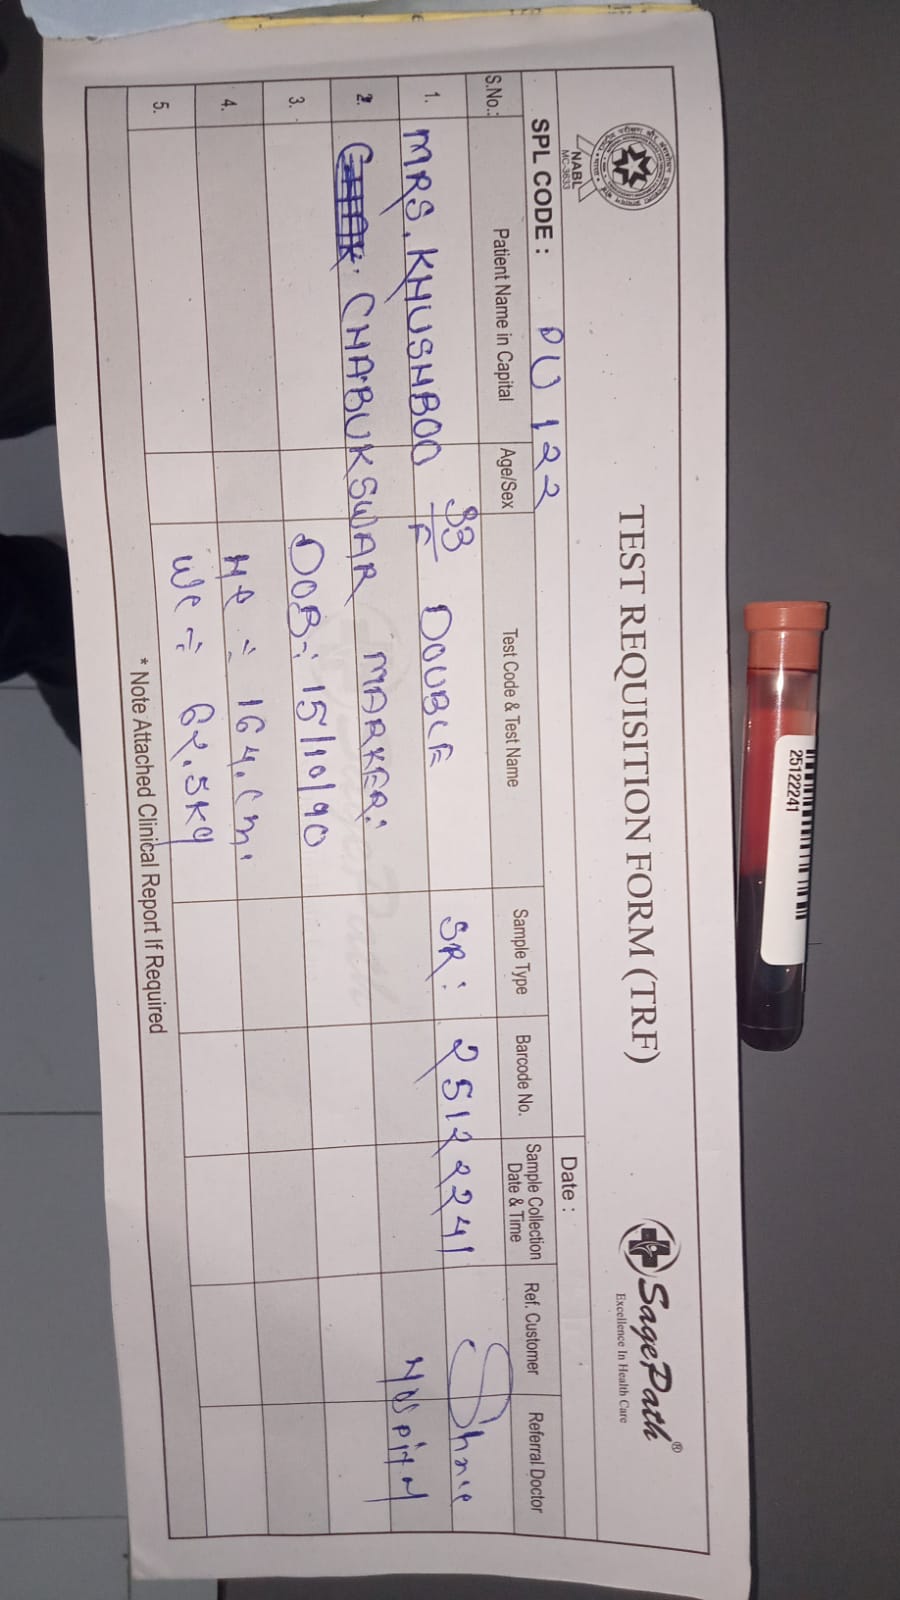 NABL
MC-3633
TEST REQUISITION FORM (TRF)
SagePath®
Excellence In Health Care
SPL CODE : DU 122
Date :
S.No.: Patient Name in Capital Age/Sex Test Code & Test Name Sample Type Barcode No. Sample Collection Date & Time Ref. Customer Referral Doctor
1. MRS. KHUSHBOO 33/F DOUBLE SR: 25122241
2. CHABUKSWAR MARKER:
3. DOB: 15/10/90
4. Ht: 164.cm.
5. Wt: 62.5kg
* Note Attached Clinical Report If Required
25122241